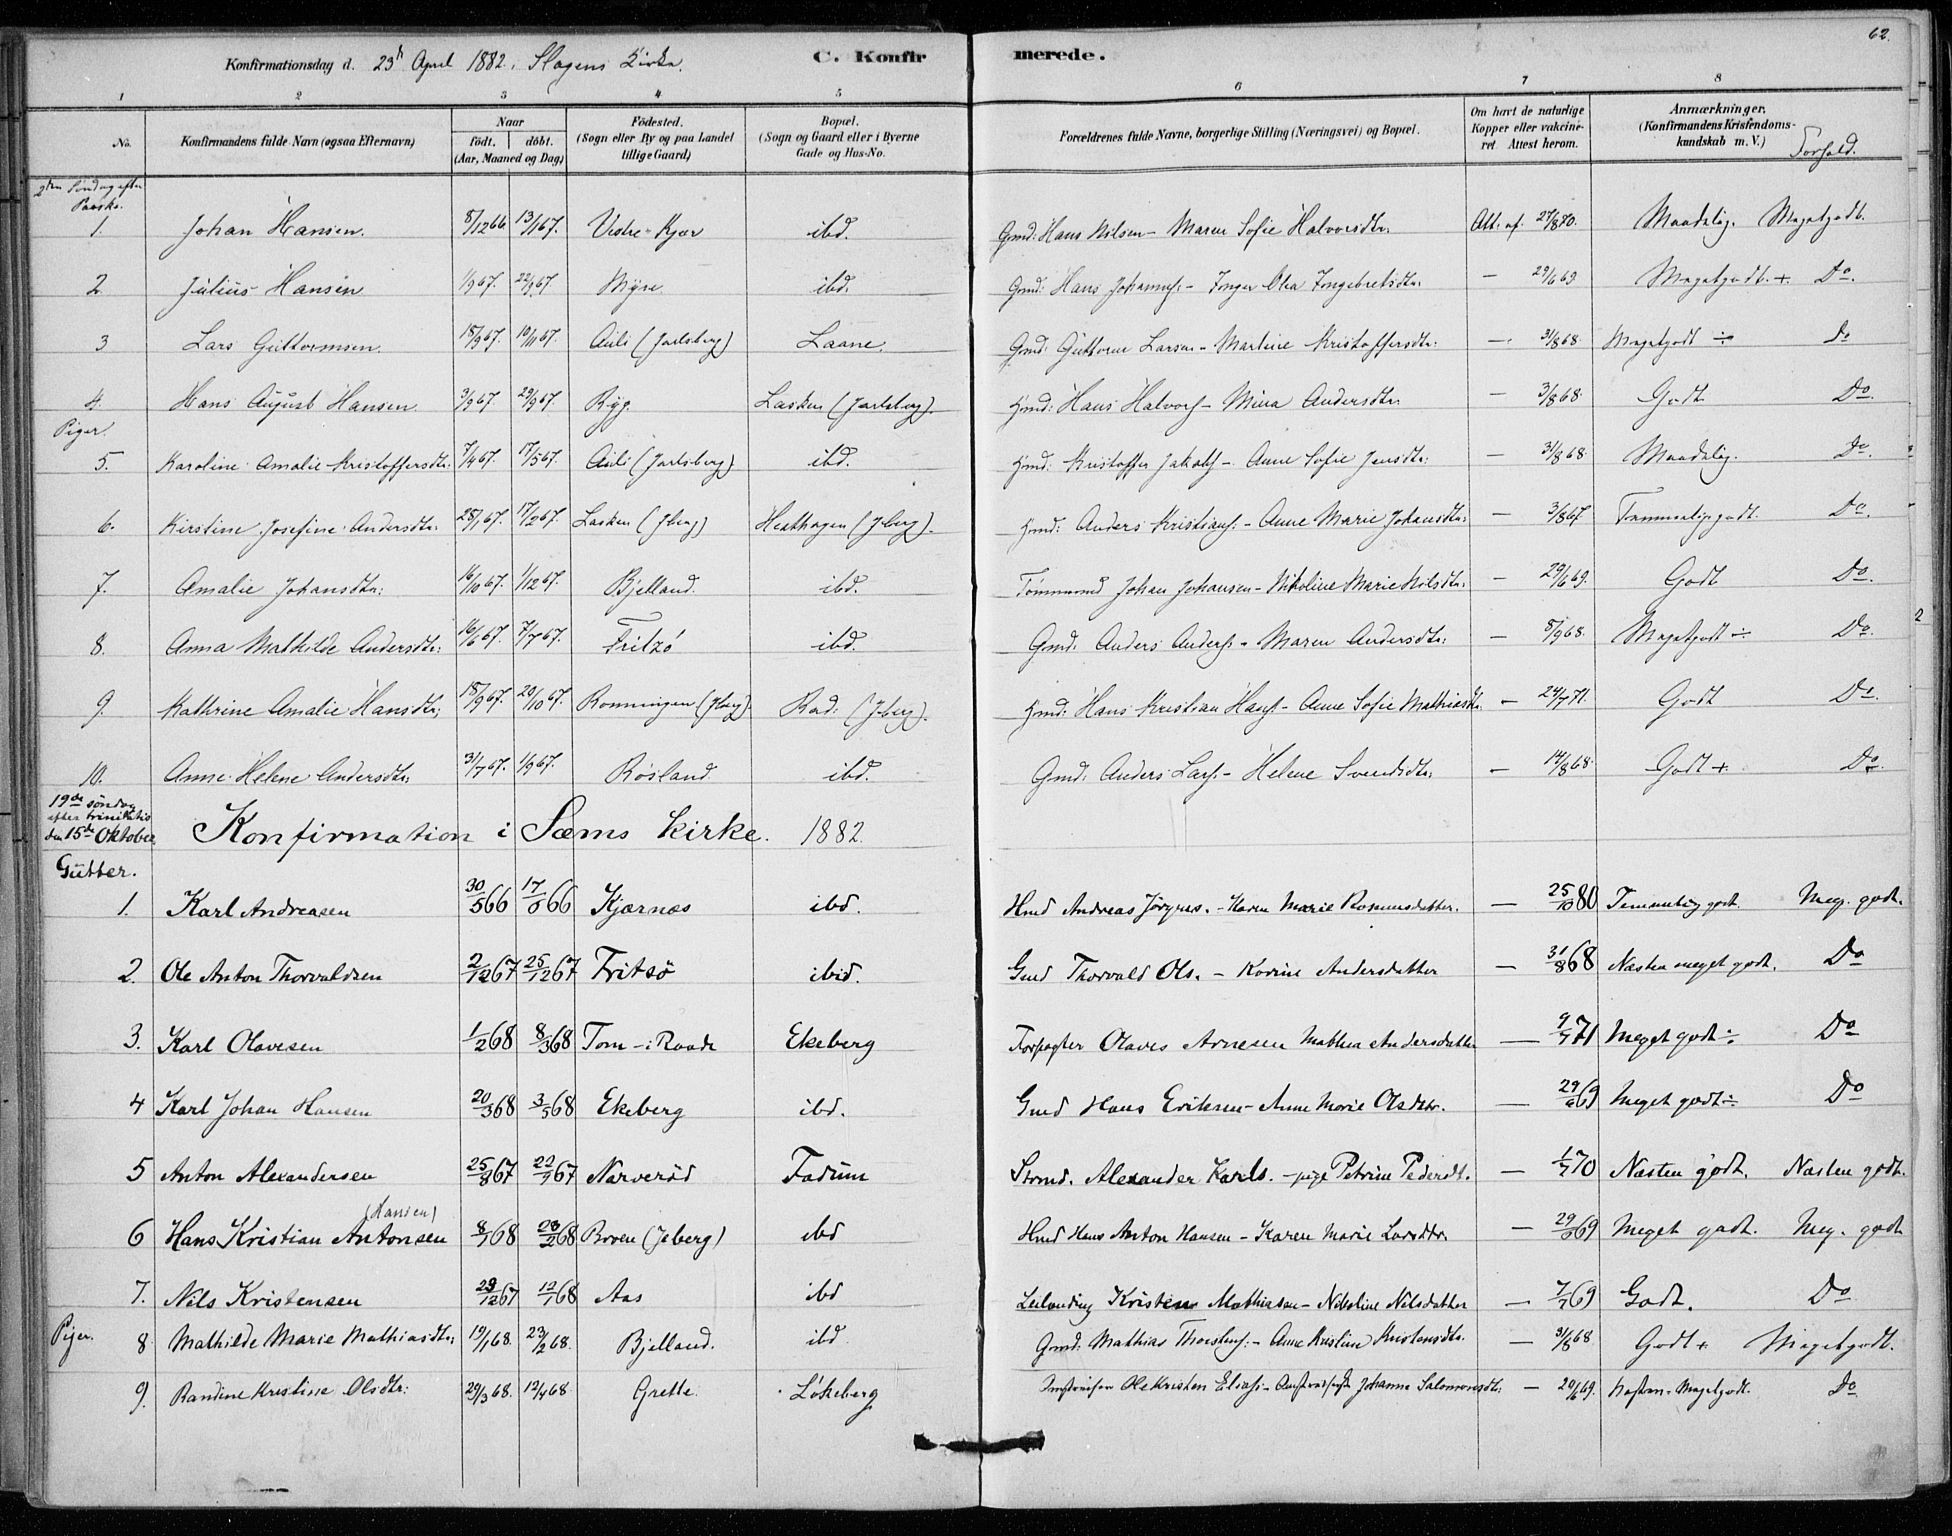 62.
Konfirmationsdag d. 23de April 1882. Slagens Kirke. C. Konfirmerede.
1 2 3 4 5 6 7 8
No. Konfirmandens fulde Navn (ogsaa Efternavn) Naar født. døbt. (Aar, Maaned og Dag) Fødested. (Sogn eller By og paa Landet tillige Gaard) Bopæl. (Sogn og Gaard eller i Byerne Gade og Hus-No. Forældrenes fulde Navne, borgerlige Stilling (Næringsvei) og Bopæl. Om havt de naturlige Kopper eller vakcineret. Attest herom. Anmærkninger. (Konfirmandens Kristendomskundskab m. V.) Forhold.
2den Søndag efter Paaske.
1. Johan Hansen. 8/12 66 13/1 67. Vestre-Kjær ibd. Gmd: Hans Nilsen - Maren Sofie Halvorsdtr: Att: af. 27/8 70. Maadelig. Megetgodt.
2 Julius Hansen 1/9 67. 22/9 67 Myre ibd. Gmd: Hans Johannes: - Inger Olea Ingebretsdtr: — 29/6 69 Megetgodt + Do.
3 Lars Guttormsen. 18/9 67. 10/11 67. Auli (Jarlsberg) Laane. Gmd: Guttorm Larsen - Martine Kristoffersdtr: — 31/8 68. Megetgodt ÷ Do
4. Hans August Hansen 3/9 67. 29/9 67. Ryg. Lasken (Jarlsberg). Hmd: Hans Halvors - Mina Andersdtr: — 3/8 68. Godt Do.
Piger.
5. Karoline Amalie Kristoffersdtr: 7/4 67. 17/5 67. Auli (Jarlsberg) ibd. Hmd: Kristoffer Jakobs - Anne Sofie Jensdtr: — 31/8 68. Maadelig. Do.
6. Kirstine Josefine Andersdtr: 28/1 67. 17/2 67. Lasken (Jberg) Hesthagen (Jberg). Hmd: Anders Kristians: - Anne Marie Johansdtr: — 3/8 67. Temmeliggodt. Do.
7. Amalie Johansdtr: 16/10 67. 1/12 67. Bjelland. ibd. Tømmermd Johan Johansen - Nikoline Marie Nilsdtr: — 29/6 69. Godt Do.
8. Anna Mathilde Andersdtr: 16/6 67. 7/7 67. Fritzö ibd. Gmd: Anders Anders: - Maren Andersdtr: — 8/9 68. Megetgodt ÷ Do.
9. Kathrine Amalie Hansdtr: 18/9 67. 20/10 67. Rønningen (Jberg). Rød: (Jberg). Hmd: Hans Kristian Hans: - Anne Sofie Mathiasdtr. — 24/7 71. Godt Do.
10. Anne Helene Andersdtr: 31/7 67. 1/9 67. Røsland ibd. Gmd: Anders Lars: - Helene Svendsdtr: — 14/8 68. Godt + Do.
19de søndag efter trinitatis den 15de Oktober Konfirmation i Sæms kirke. 1882.
Gutter.
1. Karl Andreasen 30/5 66 17/6 66 Kjærnæs ibd. Hmd Andreas Jörgens. - Karen Marie Rasmusdatter. — 25/10 80 Temmelig godt. Meg. godt.
2. Ole Anton Thorvaldsen 2/12 67 25/12 67 Fritsö ibid. Gmd Thorvald Ols. - Korine Andersdatter — 31/8 68 Næsten meget godt. Do
3. Karl Olavesen 1/2 68 8/3 68 Tom - i Raade Ekeberg Forpagter Olaves Arnesen Mathea Andersdatter — 9/7 71 Meget godt ÷ Do
4 Karl Johan Hansen 20/3 68 3/5 68 Ekeberg ibd. Gmd Hans Eriksen - Anne Marie Olsdtr. — 29/6 69 Meget godt ÷ Do
5 Anton Alexandersen 25/8 67 22/9 67 Narveröd Fadum Stømd. Alexander Karls. - pige Petrine Pedersdt. — 1/7 70 Næsten godt. Næsten godt.
6 Hans Kristian Antonsen (Hansen) 8/1 68 23/2 68 Broen (Jeberg) ibd Hmd Hans Anton Hansen - Karen Marie Larsdtr. — 29/6 69 Meget godt. Meg. godt
7. Nils Kristensen 29/12 67 12/1 68 Aas ibd Leilending Kristen Mathiasen - Nikoline Nilsdatter — 7/7 69 Godt. Do
Piger.
8. Mathilde Marie Mathiasdtr: 19/1 68. 23/2 68. Bjelland. ibd Gmd: Mathias Thorstens: - Anne Kristine Kristensdtr. — 31/8 68. Godt + Megetgodt.
9. Randine Kristine Olsdtr: 29/3 68. 19/4 68. Grette. Løkeberg Ole Kristen Elias: - Johanne Salomonsdtr: — 20/6 69. Næsten-Megetgodt. Do.